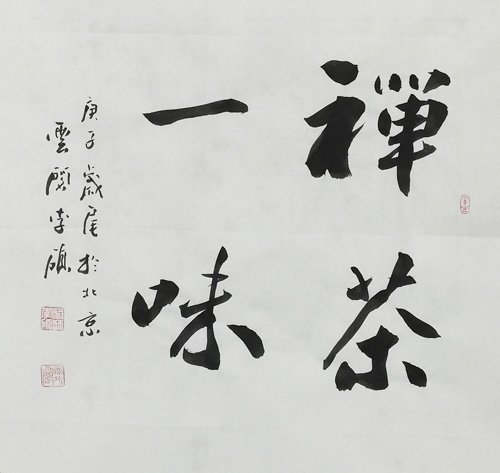 禪茶
一味
庚子歲尾於北京
雲李